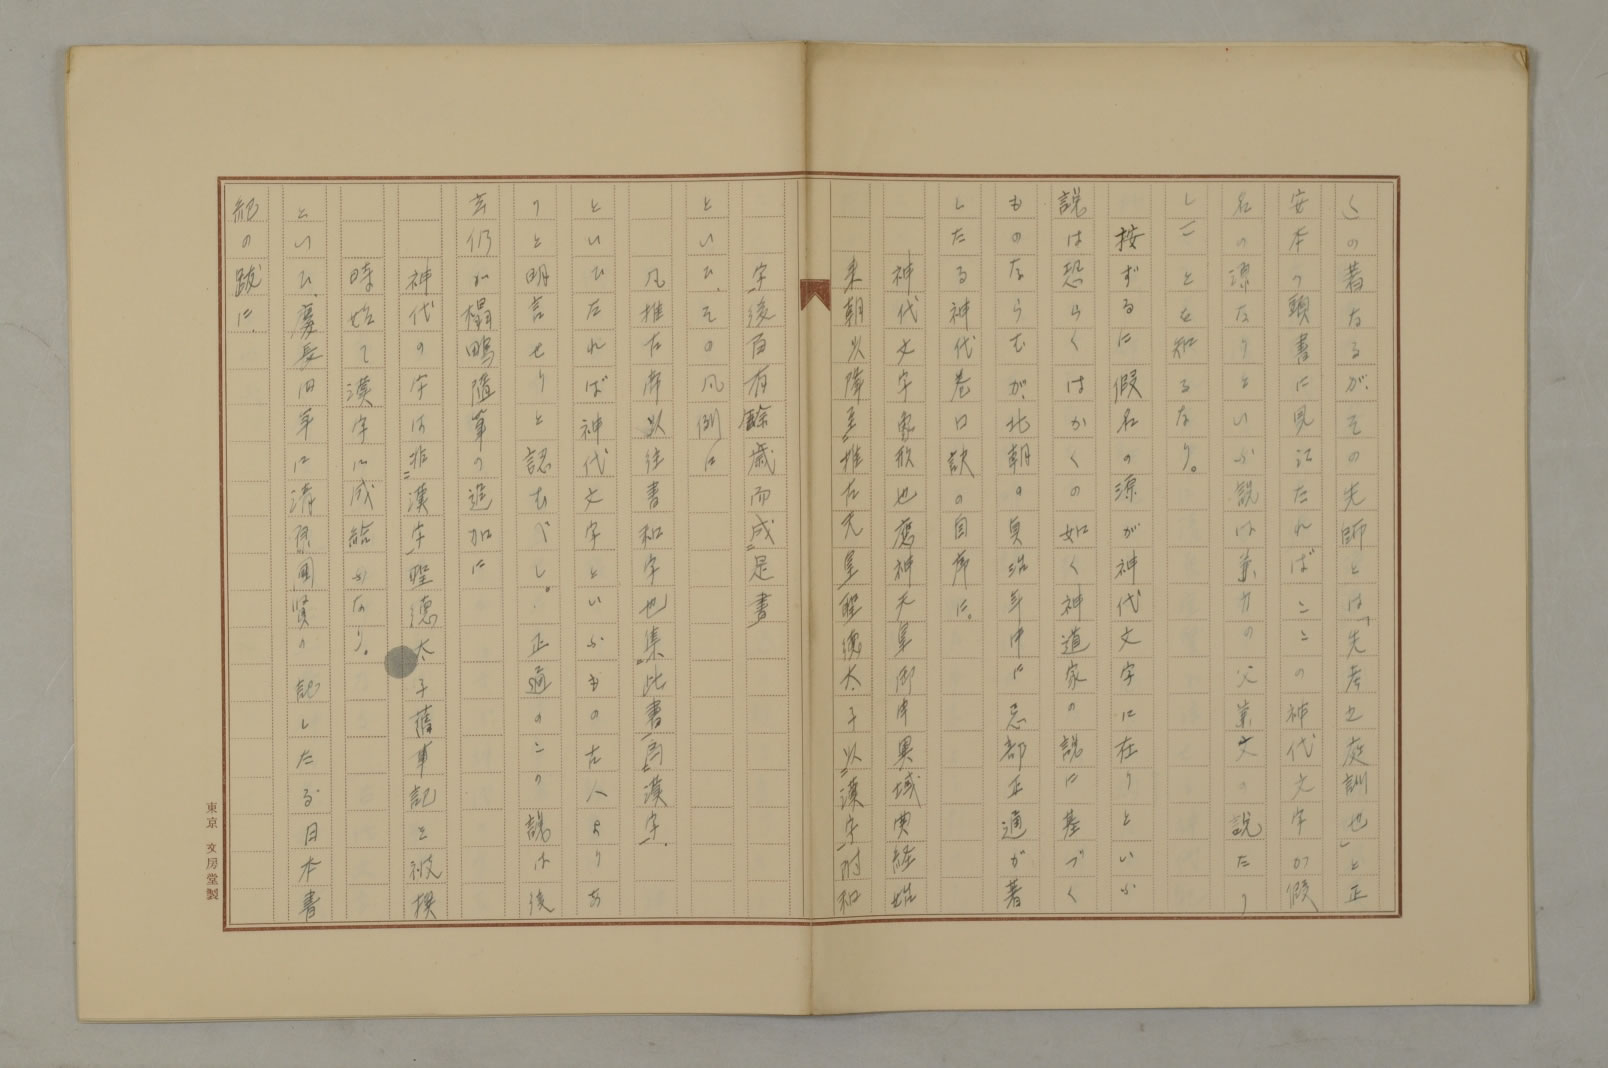 くの著なるが、その先師とは「先考之庭訓也」と正
安本の頭書に見江たればこゝの神代文字が假
名の源なりといふ説は兼方の父兼文の説たり
しことを知るなり。
按ずるに假名の源が神代文字に在りといふ
説は恐らくはかくの如く神道家の説に基づく
ものならむが、北朝の貞治年中に忌部正通が著
したる神代巻口訣の自序に。
神代文字象形也應神天皇御宇異域典経始
来朝以降至推古天皇聖徳太子以漢字附和
字後百有餘歳而成是書
といひ、その凡例に
凡推古帝以往書和字也集此書國漢字。
といひたれば神代文字といふもの古人よりあ
りと明言せりと認むべし。正通のこの説は後
玄仍が榻鴫随筆の追加に
神代の字は非漢字聖徳太子舊事記を被撰
時始て漢字に成給ふなり。
といひ、慶長四年に清原國賢の記したる日本書
紀の跋に、
東京 文房堂製